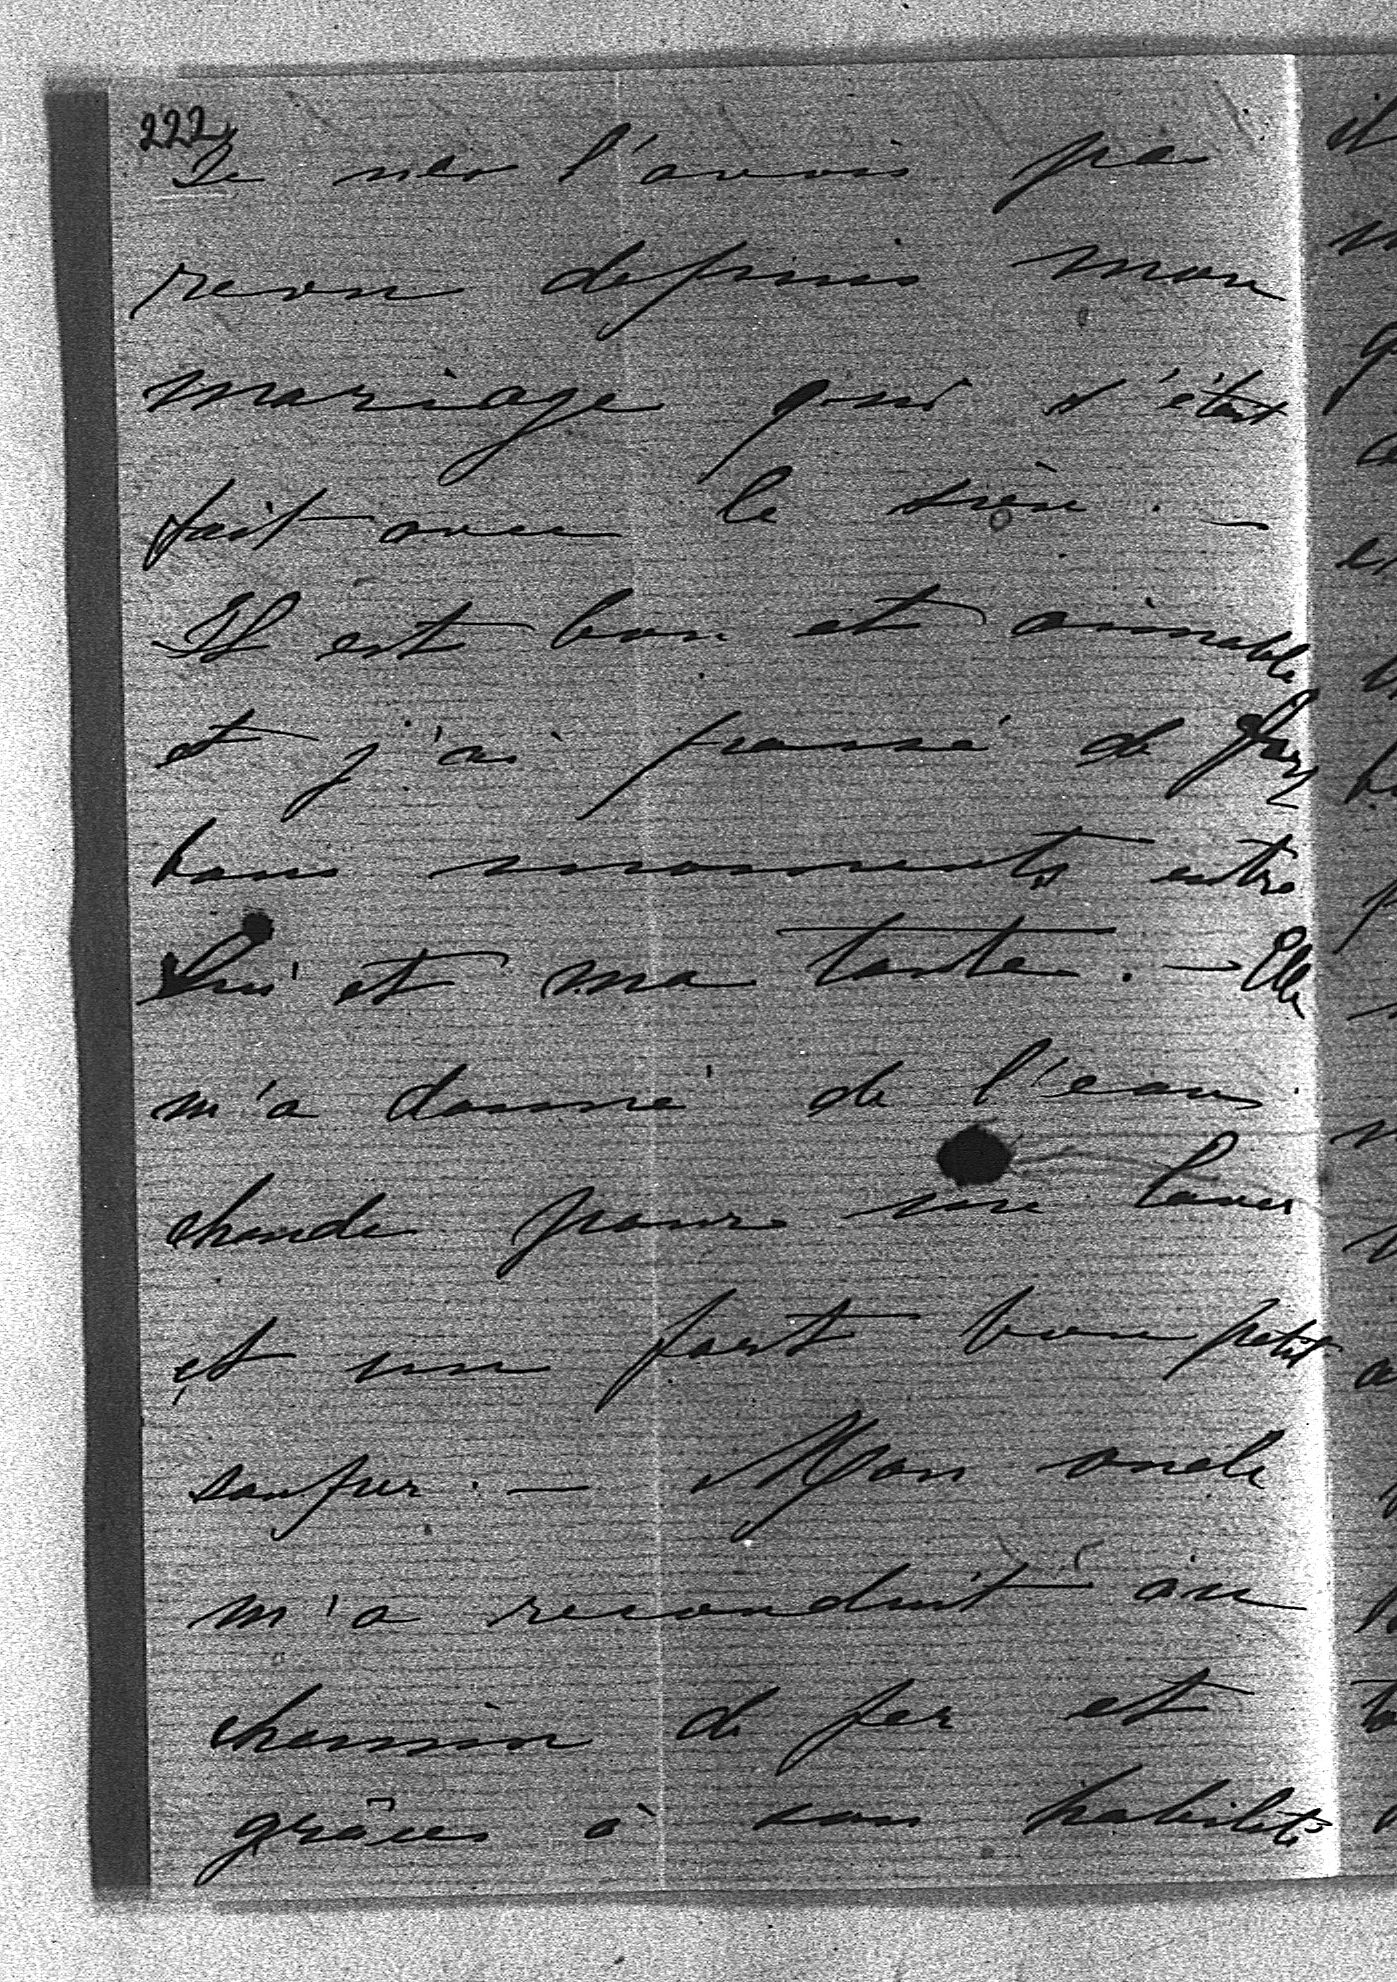 222
Je ne l'avais pas
revu depuis mon
mariage qui s'était
fait avec le sien. —
Il est bon et aimable
et j'ai passé de
bons moments entre
lui et ma tante. — Elle
m'a donné de l'eau
chaude pour me laver
et un fort bon petit
souper. — Mon oncle
m'a reconduit au
chemin de fer et
grâces à son habileté